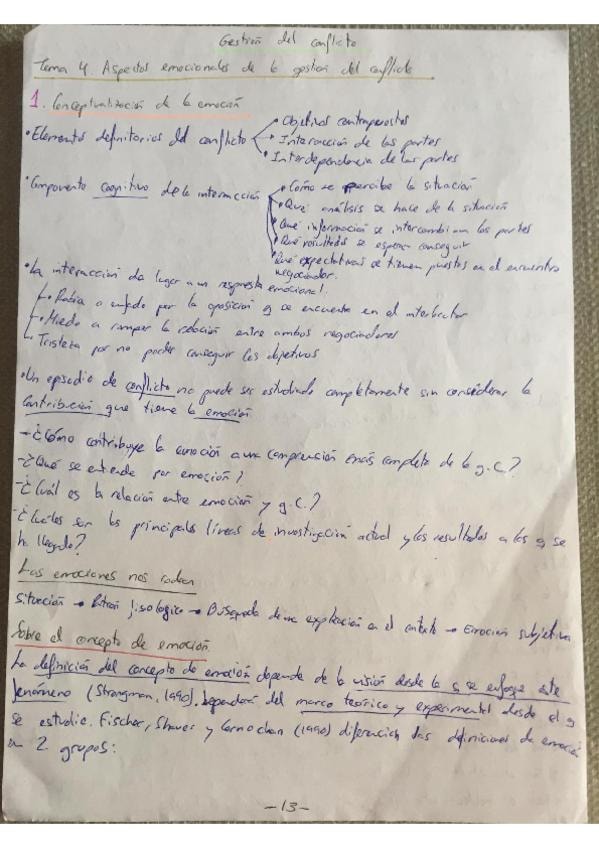 Gestión del conflicto
Tema 4. Aspectos emocionales de la gestión del conflicto
1. Conceptualización de la emoción
• Elementos definitorios del conflicto
• Objetivos contrapuestos
• Interacción de las partes
• Interdependencia de las partes
• Componente cognitivo de la interacción
• Cómo se percibe la situación
• Qué análisis se hace de la situación
• Qué información se intercambian las partes
• Qué resultados se esperan conseguir
• Qué expectativas se tienen puestas en el encuentro
negociador.
• La interacción da lugar a un respuesta emocional.
Rabia o enfado por la oposición q se encuentra en el interlocutor
Miedo a romper la relación entre ambos negociadores
Tristeza por no poder conseguir los objetivos
• Un episodio de conflicto no puede ser estudiado completamente sin considerar la
contribución que tiene la emoción
- ¿Cómo contribuye la emoción a una comprensión más completa de la g.C.?
- ¿Qué se entiende por emoción?
- ¿Cuál es la relación entre emoción y g.C.?
- ¿Cuáles son las principales líneas de investigación actual y los resultados a los q se
ha llegado?
Las emociones nos rodean
Situación → Patrón fisiológico → Búsqueda de una explicación en el contexto → Emoción subjetiva
Sobre el concepto de emoción.
La definición del concepto de emoción depende de la visión desde la q se enfoque este
fenómeno (Strongman, 1990). Dependerá del marco teórico y experimental desde el q
se estudie. Fischer, Shaver y Carnochan (1990) diferencian las definiciones de emoción
en 2 grupos:
- 13 -